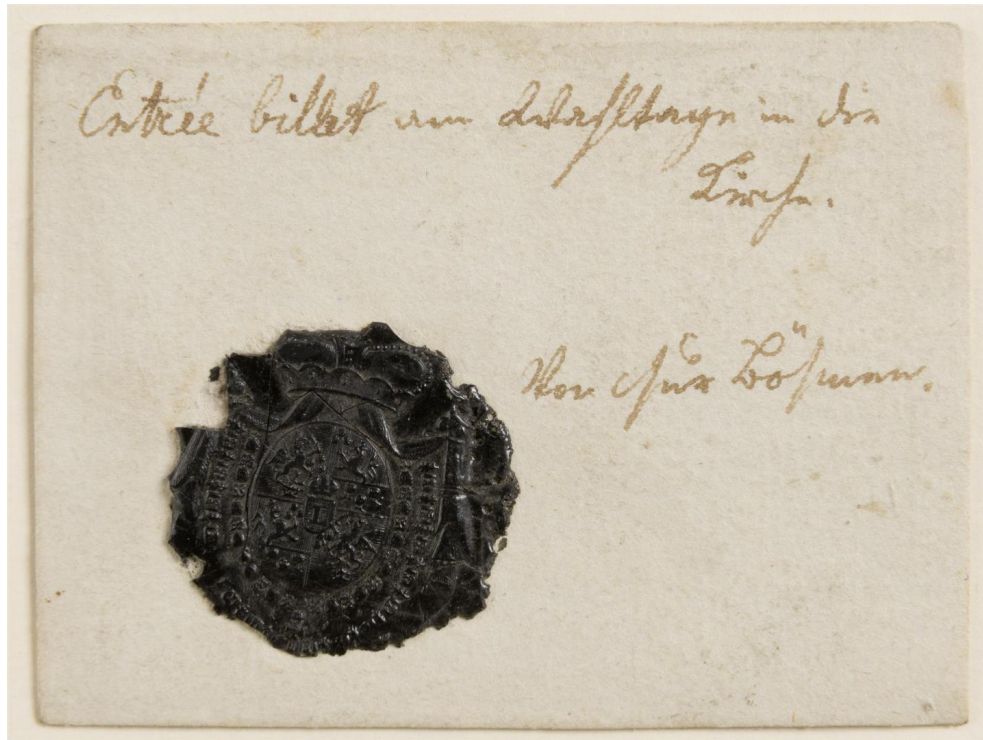 Entrée billet am Wahltage in die
Kirche.
Von Chur Böhmen.